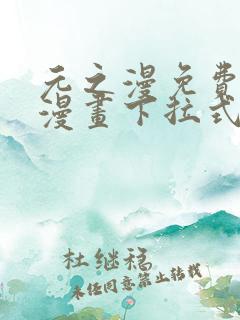 无之漫免费
漫畫下拉式
杜继稳
未经同意禁止转载